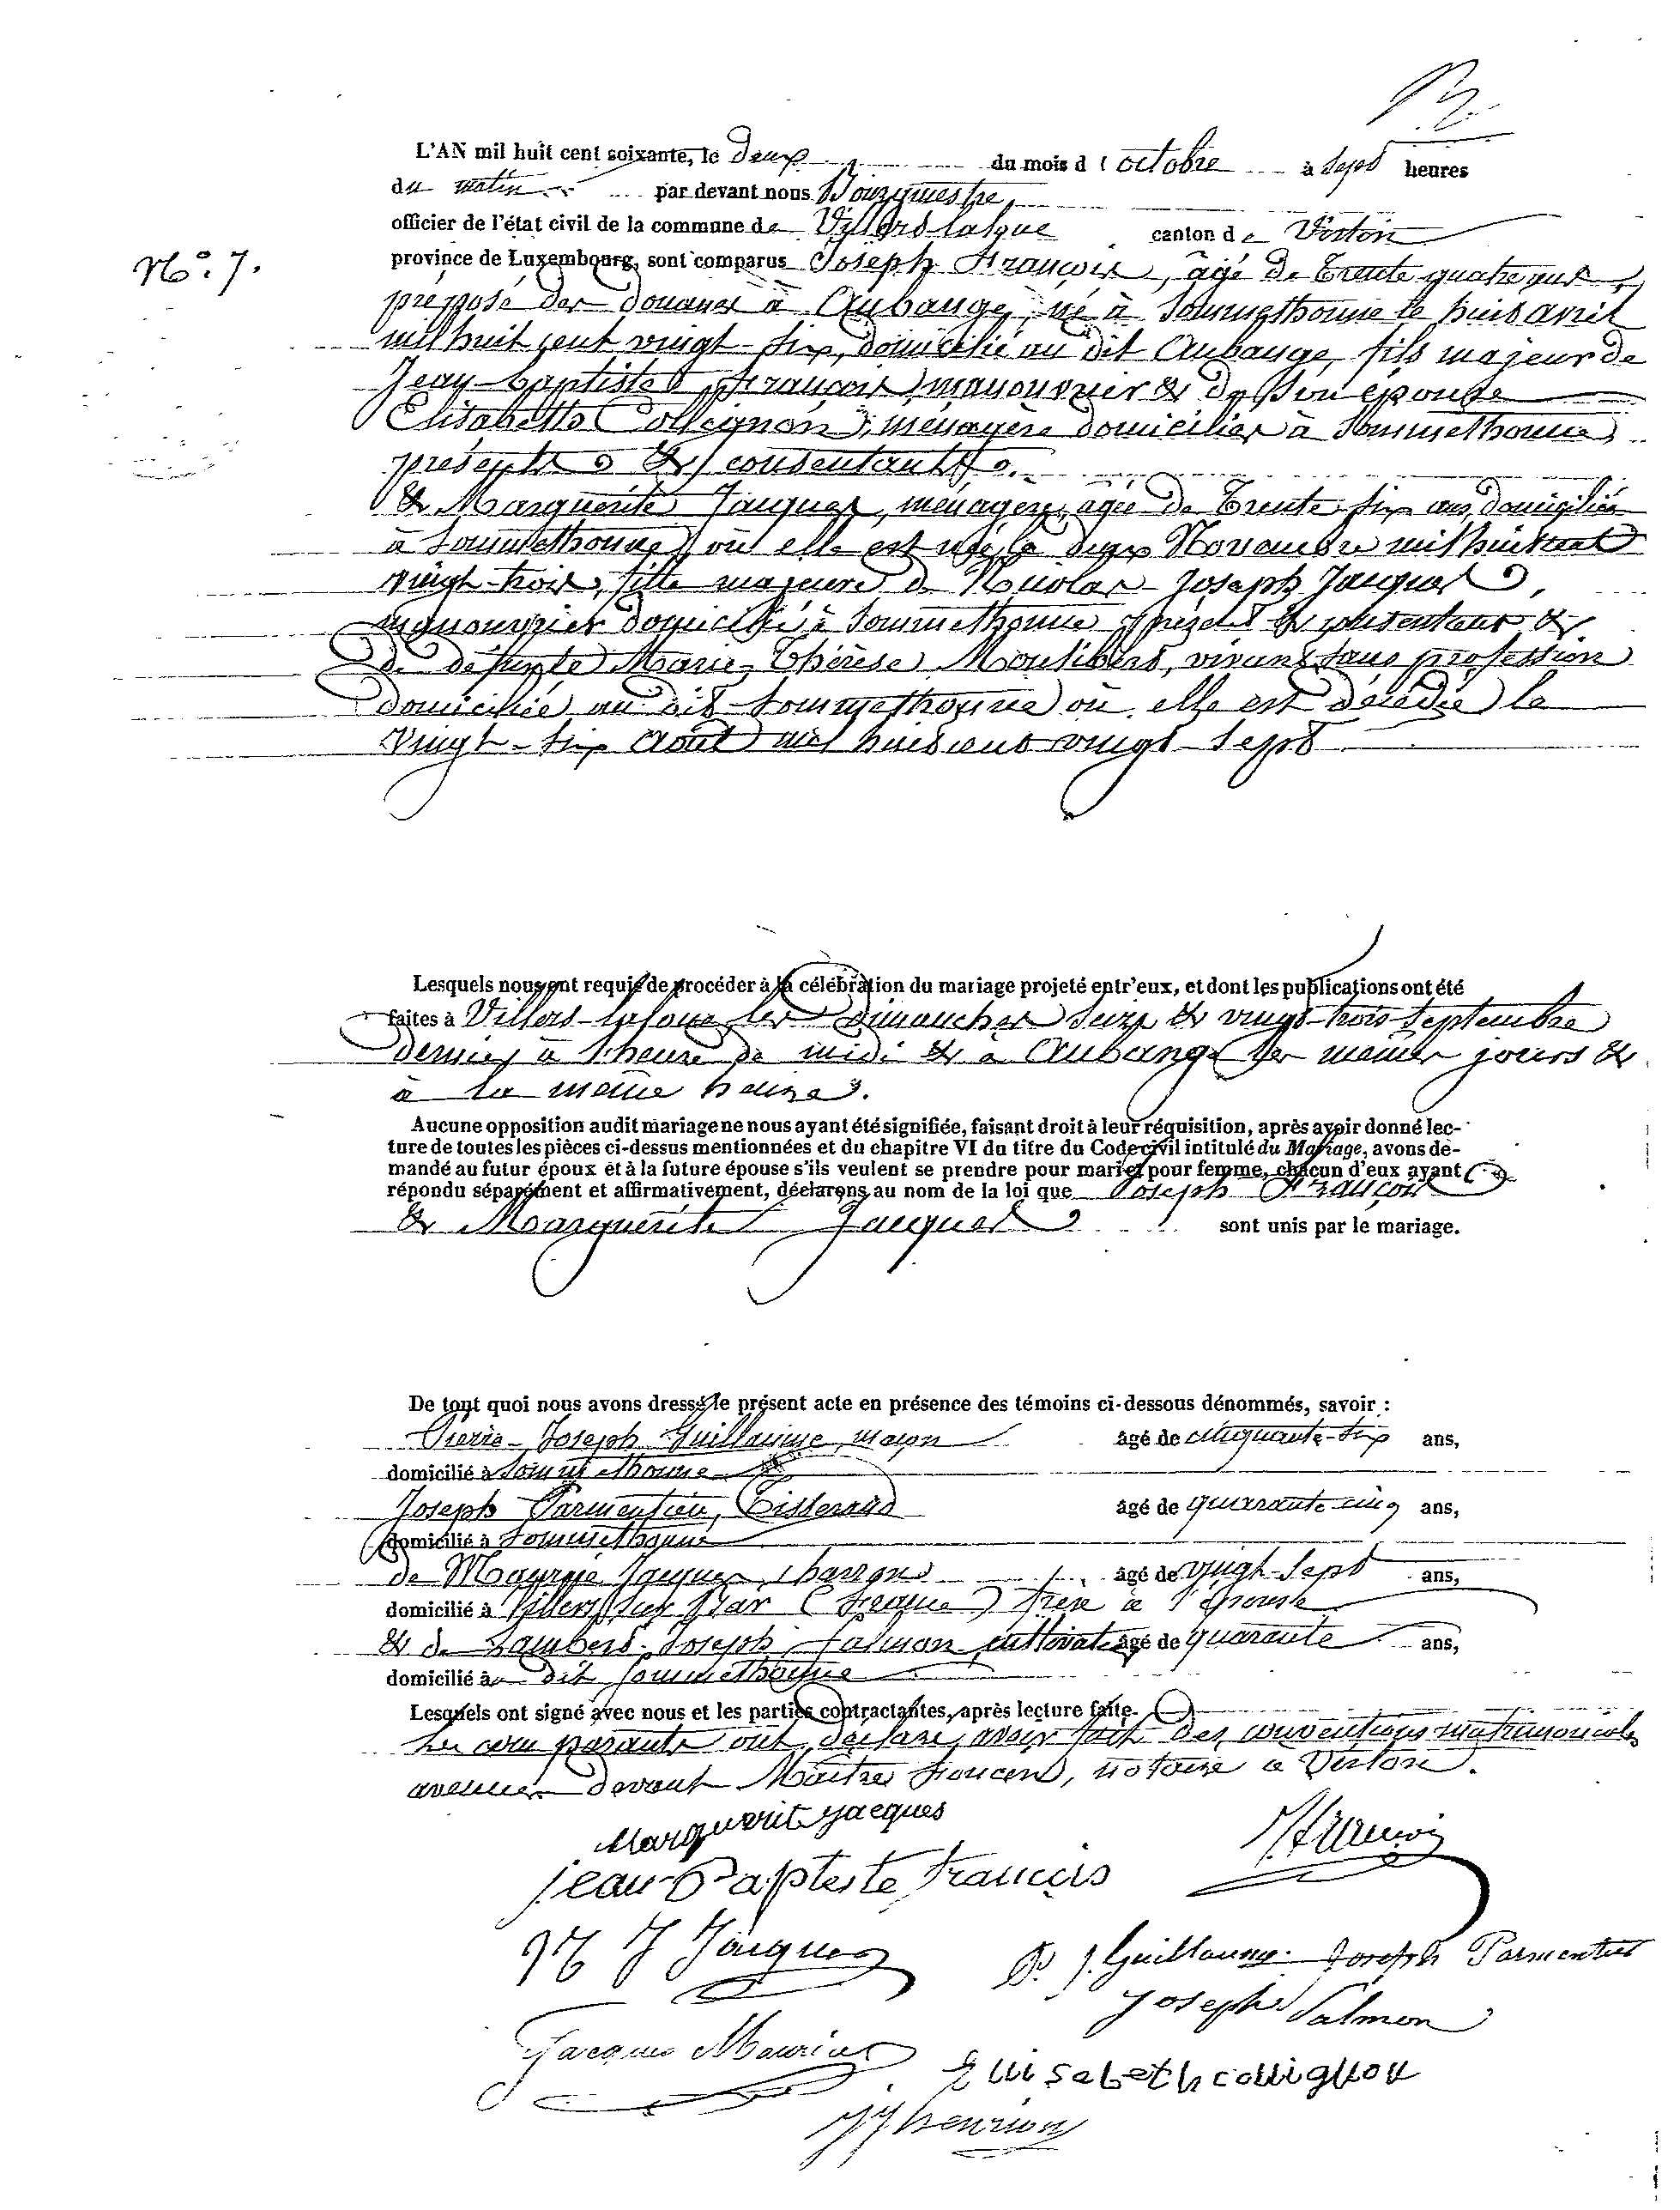 N°. 7.
L'AN mil huit cent soixante, le deux du mois d'octobre à sept heures
du matin par devant nous Bourgmestre,
officier de l'état civil de la commune de Villers-laloue canton de Virton
province de Luxembourg, sont comparus Joseph François, âgé de trente quatre ans,
préposé des douanes à Aubange, né à Sommethonne le huit avril
mil huit cent vingt-six, domicilié au dit Aubange, fils majeur de
Jean-baptiste François, manouvrier & de son épouse
Elisabeth Collignon, ménagère domiciliés à Sommethonne,
présents & consentants.
& Marguerite Jacques, ménagère, âgée de Trente-six ans, domiciliée
à Sommethonne, où elle est née le deux Novembre mil huit cent
vingt-trois, fille majeure de Nicolas-Joseph Jacques,
manouvrier domicilié à Sommethonne, présent & consentant &
de défunte Marie-Thérèse, vivant sans profession
domiciliée au dit Sommethonne où elle est décédée le
vingt-six Août mil huit cent vingt-sept
Lesquels nous ont requis de procéder à la célébration du mariage projeté entr'eux, et dont les publications ont été
faites à Villers-laloue les dimanches seize & vingt-trois septembre
dernier à l'heure de midi & à Aubange les mêmes jours &
à la même heure.
Aucune opposition audit mariage ne nous ayant été signifiée, faisant droit à leur réquisition, après avoir donné lec-
ture de toutes les pièces ci-dessus mentionnées et du chapitre VI du titre du Code civil intitulé du Mariage, avons de-
mandé au futur époux et à la future épouse s'ils veulent se prendre pour mari et pour femme, chacun d'eux ayant
répondu séparément et affirmativement, déclarons au nom de la loi que Joseph François
& Marguerite Jacques sont unis par le mariage.
De tout quoi nous avons dressé le présent acte en présence des témoins ci-dessous dénommés, savoir :
Pierre-Joseph Guillaume, maçon âgé de cinquante-six ans,
domicilié à Sommethonne
Joseph Parmentier, Tisserand âgé de quarante cinq ans,
domicilié à Sommethonne
de Jacques, âgé de vingt-sept ans,
domicilié à Villers (France) frère à l'épouse
& de Lambert-Joseph Salmon, cultivateur âgé de quarante ans,
domicilié au dit Sommethonne
Lesquels ont signé avec nous et les parties contractantes, après lecture faite.
Les comparants ont déclaré avoir fait des conventions matrimoniales
devant Maître, notaire à Virton.
Marguerit jacques
J. François
jean Bapteste francois
N J Jacques
P. J. Guillaume Joseph Parmentier
Joseph Salmon
Jacques
Elisabeth collignon
JJ henrion